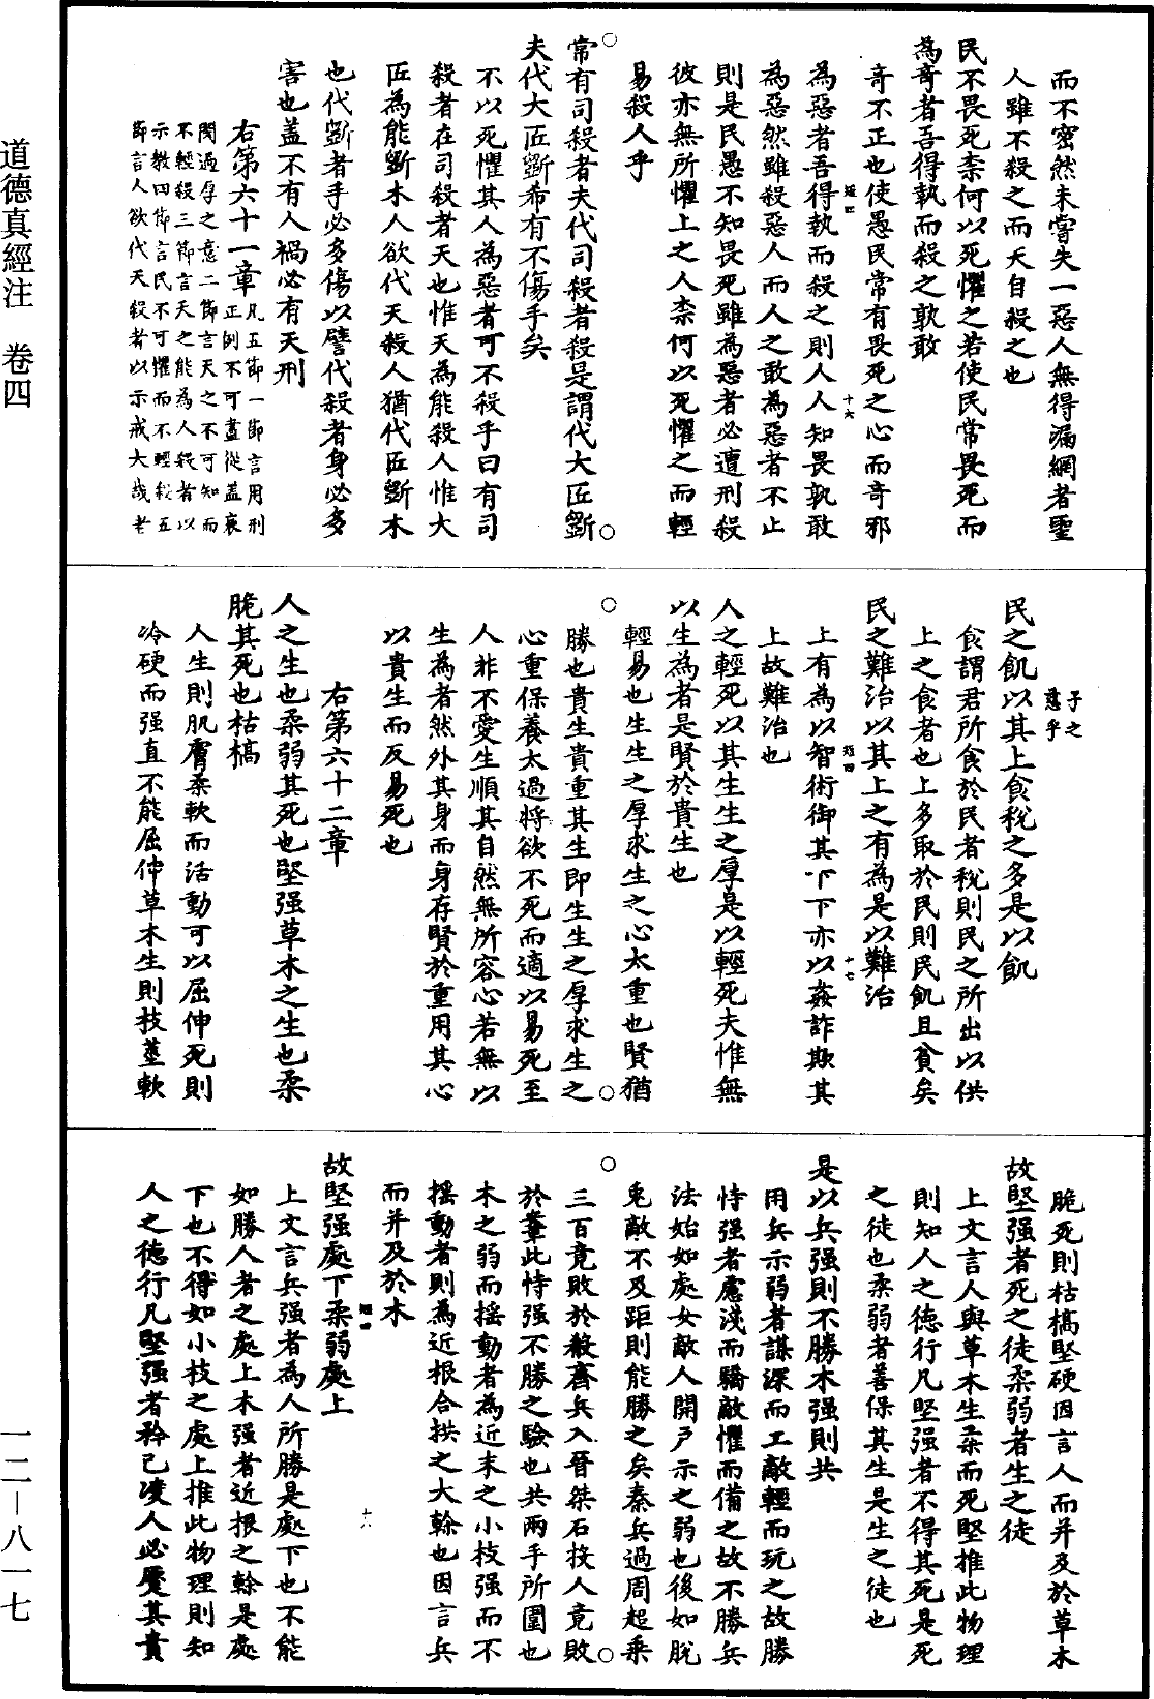 道德真經注　卷四
一二—八一七
而不密然未嘗失一惡人無得漏網者聖
人雖不殺之而天自殺之也
民不畏死柰何以死懼之若使民常畏死而
為奇者吾得執而殺之孰敢
奇不正也使愚民常有畏死之心而奇邪
為惡者吾得執而殺之則人人知畏孰敢
為惡然雖殺惡人而人之敢為惡者不止
則是民愚不知畏死雖為惡者必遭刑殺
彼亦無所懼上之人柰何以死懼之而輕
易殺人乎
常有司殺者夫代司殺者殺是謂代大匠斲
夫代大匠斲希有不傷手矣
不以死懼其人為惡者可不殺乎曰有司
殺者在司殺者天也惟天為能殺人惟大
匠為能斲木人欲代天殺人猶代匠斲木
也代斲者手必多傷以譬代殺者身必多
害也盖不有人禍必有天刑
右第六十一章
凡五節一節言用刑
正例不可盡從盖衰
閔過厚之意二節言天之不可知而
不輕殺三節言天之能為人殺者以
示教四節言民不可懼而不輕殺五
節言人欲代天殺者以示戒大哉老
子之
慈乎
民之飢以其上食稅之多是以飢
食謂君所食於民者稅則民之所出以供
上之食者也上多取於民則民飢且貧矣
民之難治以其上之有為是以難治
上有為以智術御其下下亦以姦詐欺其
上故難治也
人之輕死以其生生之厚是以輕死夫惟無
以生為者是賢於貴生也
輕易也生生之厚求生之心太重也賢猶
勝也貴生貴重其生即生生之厚求生之
心重保養太過將欲不死而適以易死至
人非不愛生順其自然無所容心若無以
生為者然外其身而身存賢於重用其心
以貴生而反易死也
右第六十二章
人之生也柔弱其死也堅强草木之生也柔
脆其死也枯槁
人生則肌膚柔軟而活動可以屈伸死則
冷硬而强直不能屈伸草木生則枝莖軟
脆死則枯槁堅硬因言人而并及於草木
故堅强者死之徒柔弱者生之徒
上文言人與草木生柔而死堅推此物理
則知人之德行凡堅强者不得其死是死
之徒也柔弱者善保其生是生之徒也
是以兵强則不勝木强則共
用兵示弱者謀深而工敵輕而玩之故勝
恃强者慮淺而驕敵懼而備之故不勝兵
法始如處女敵人開戶示之弱也後如脫
兎敵不及距則能勝之矣秦兵過周超乘
三百竟敗於殽齊兵入晉桀石投人竟敗
於鞌此恃强不勝之驗也共兩手所圍也
木之弱而摇動者為近末之小枝强而不
摇動者則為近根合拱之大榦也因言兵
而并及於木
故堅强處下柔弱處上
上文言兵强者為人所勝是處下也不能
如勝人者之處上木强者近根之榦是處
下也不得如小枝之處上推此物理則知
人之德行凡堅强者矜己凌人必壓其貴